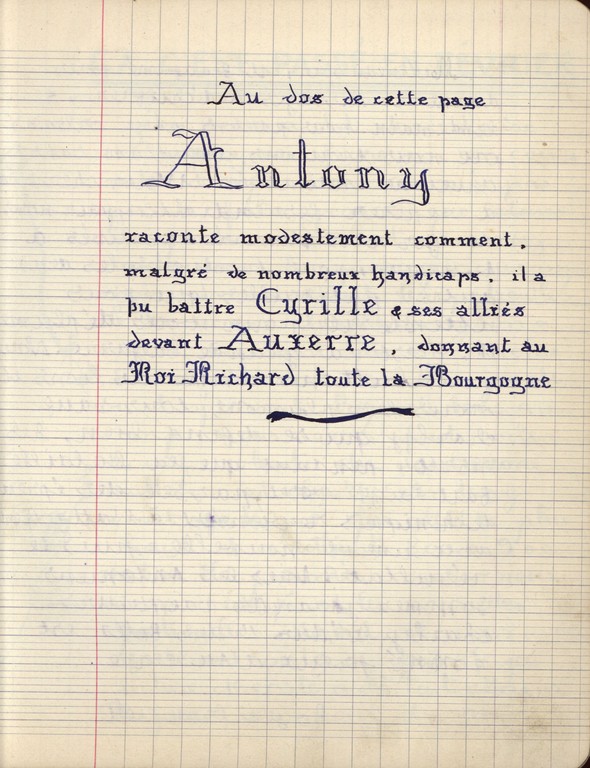 Au dos de cette page
Antony
raconte modestement comment,
malgré de nombreux handicaps, il a
pu battre Cyrille & ses alliés
devant Auxerre, donnant au
Roi Richard toute la Bourgogne